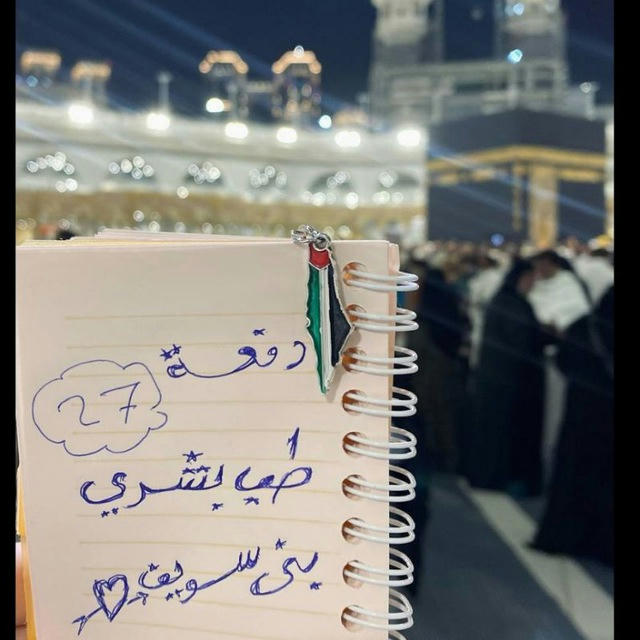 دفعة 27
طب بشري
بني سويف